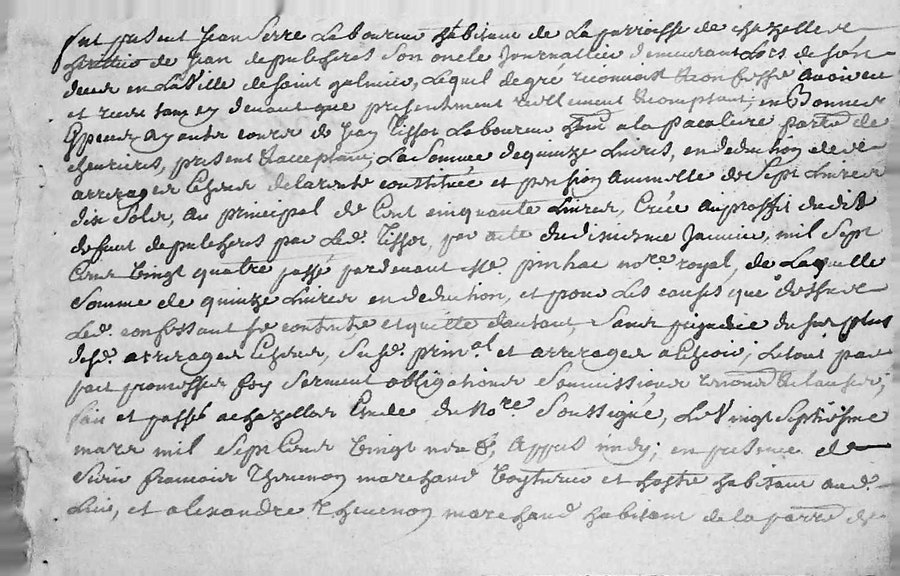 fut present Jean Serre Laboureur habitant de La parroisse de chazelles
heritier de Jean depulcheris Son oncle Journallier demeurant Lors de Son
deces en La Ville de Saint galmier, Lequel de gré reconnoit & confesse avoir eu
et receu tant cy devant que presentment reellement & comptant, en Bonnes
Especes ayants cours de Jean Tissot Laboureur par.re de
chevrieres, present & acceptant, La Somme de quinze Livres, en deduction de
arrerages Echeus de la rente constituée et pension annuelle de Sept Livres
dix Sols, au principal de Cent cinquante Livres, Créée au proffit dudit
defunt depulcheris par Led. Tissot, par acte du dixieme Janvier, mil Sept
Cent Vingt quatre passé pardevant me. pinhac no.re royal, de Laquelle
Somme de quinze Livres en deduction, et pour Les causes que dessus
Led. confessant Se contente et quitte d'autant, Sans prejudice du Surplus
desd. arrerages Echeus, Susd. prin.al et arrerages a Echeoir, Le tout par
fait promesses foy Serment obligations Soumissions renond. & clauses;
fait et passé a chazelles Etude du No.re Soussigné, Le Vingt Septiesme
mars mil Sept Cent Vingt neuf, appres midy; en presence de
Sieur francois Thevenon marchand et hoste habitant aud.
Lieu, et alexandre Thevenon marchand habitant de la parre de